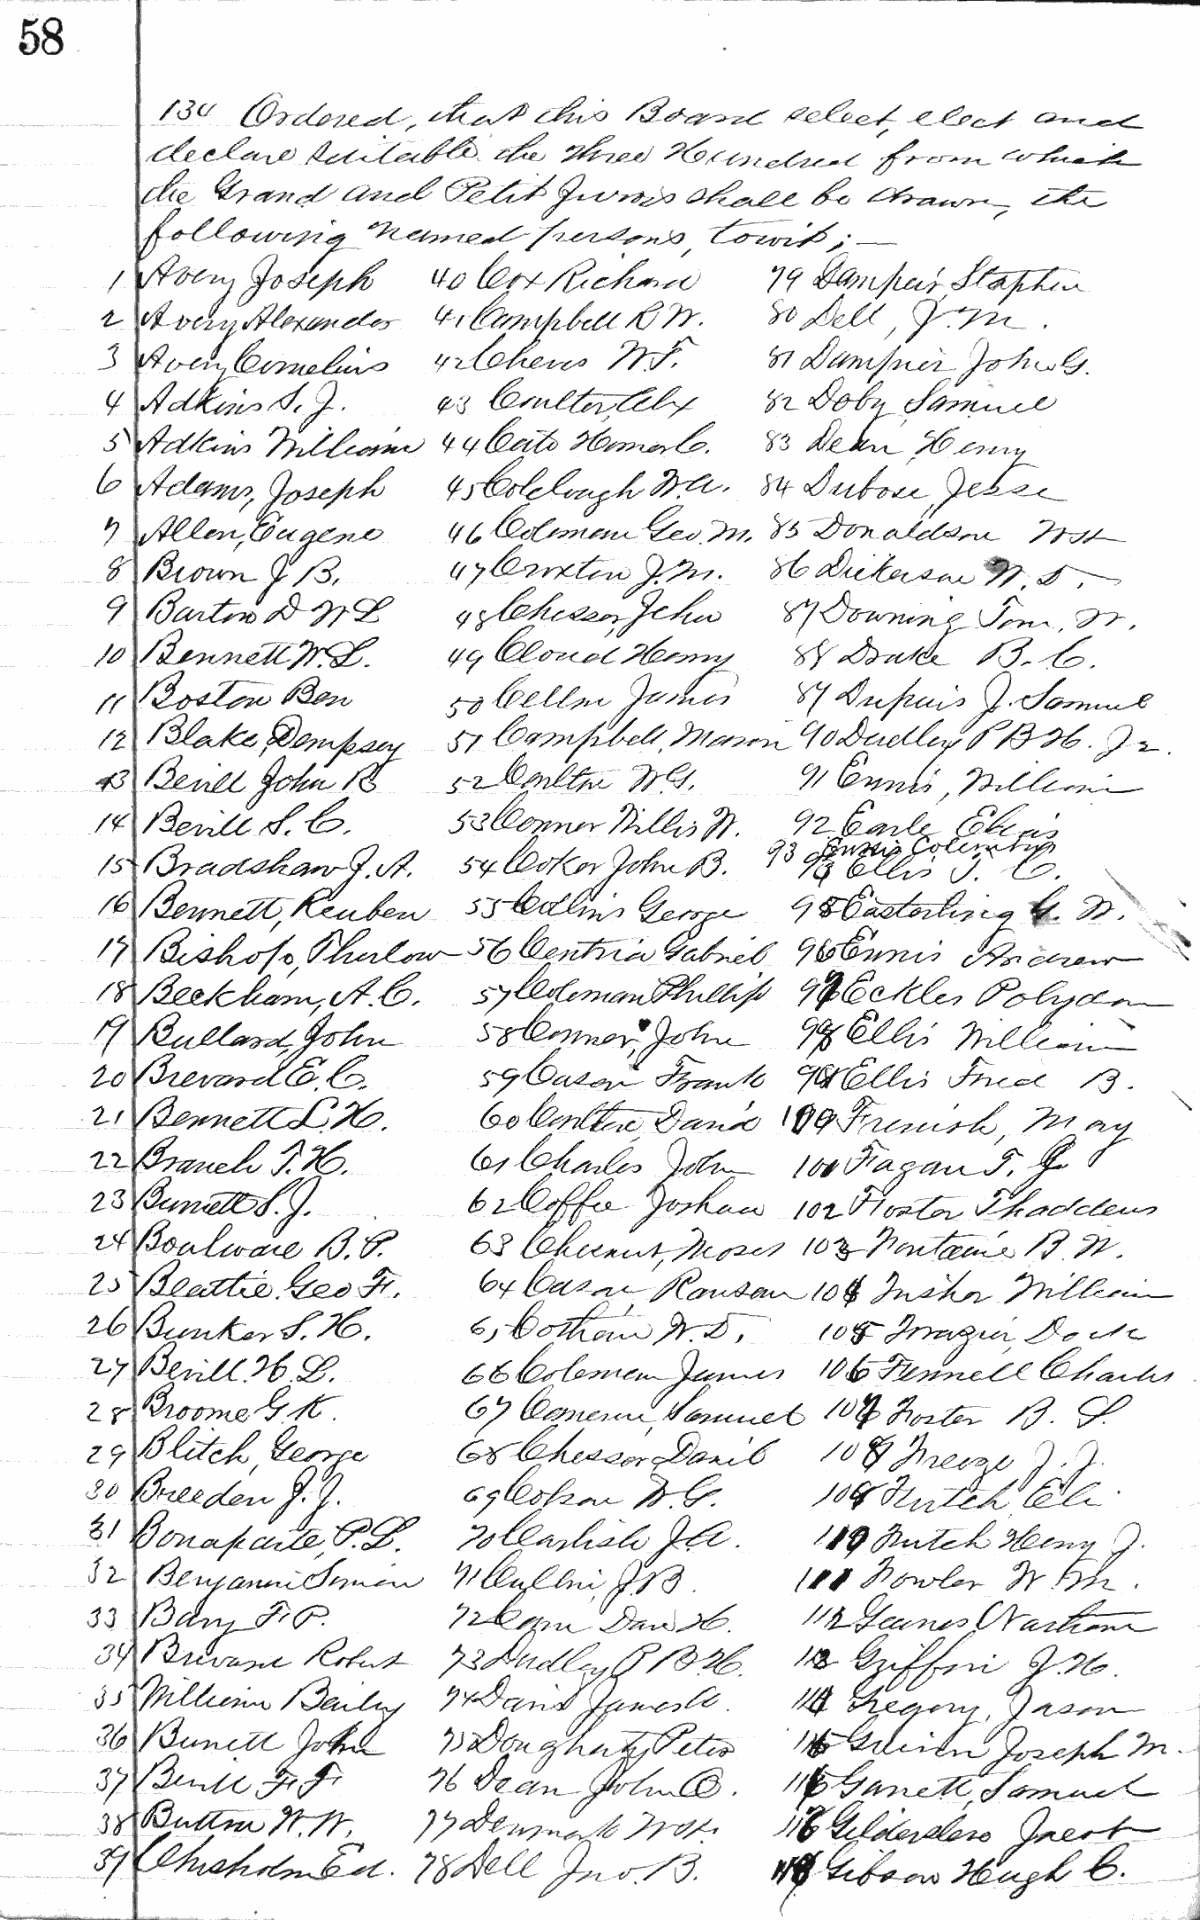 58
134 Ordered, that this Board select, elect and
declare suitable the three Hundred from which
the Grand and Petit Juries shall be drawn, the
following named persons, towit; —
1 Avery Joseph
2 Avery Alexander
3 Avery Cornelius
4 Adkins S. J.
5 Adkins William
6 Adams, Joseph
7 Allen, Eugene
8 Brown J B.
9 Barton D W L
10 Bennett W. L.
11 Boston Ben
12 Blake, Dempsey
13 Bevill John R
14 Bevill S. C.
15 Bradshaw J. A.
16 Bennett, Reuben
17 Bishop, Thurlow
18 Beckham, A. C.
19 Bullard, John
20 Brevard E. C.
21 Bennett L. H.
22 Branch T. H.
23 Burnett S. J.
24 Boulware B. P.
25 Beattie Geo F.
26 Bunker S. H.
27 Bevill H. L.
28 Broome G. K.
29 Blitch, George
30 Breeden J. J.
31 Bonaparte, P. L.
32 Benjamin Simon
33 Barry F. P.
34 Brevard Robert
35 William Bailey
36 Burnett John
37 Bevill F. F.
38 Button W. W.
39 Chisholm Ed.
40 Cox Richard
41 Campbell R W.
42 Cheves W. F.
43 Coulter, Alex
44 Cato Homer C.
45 Colclough W. A.
46 Coleman Geo. M.
47 Croxton J. M.
48 Chesser, John
49 Cloud Henry
50 Cellon James
51 Campbell, Mason
52 Coulter W. G.
53 Conner Willis W.
54 Coker John B.
55 Collins George
56 Centria Gabriel
57 Coleman Phillip
58 Conner, John
59 Cason Frank
60 Coulter, David
61 Charles John
62 Coffee Joshua
63 Chesnut, Moses
64 Cason, Ranson
65 Cothern W. D.
66 Coleman James
67 Cameron, Samuel
68 Chesser Daniel
69 Colson W. G.
70 Carlisle J. A.
71 Cullin, J B.
72 Dan H.
73 Dudley P B H.
74 Davis James A.
75 Dougherty Peter
76 Dean John O.
77 Denmark W H.
78 Dell Jno. B.
79 Dampier, Stephen
80 Dell, J. M.
81 Dampier John G.
82 Doby, Samuel
83 Dean, Henry
84 Dubose, Jesse
85 Donaldson W H
86 Dickerson W. D.
87 Downing Tom. W.
88 Drake B. C.
89 Dupuis J. Samuel
90 Dudley P B H. Jr.
91 Ennis, William
92 Earle Elias
93 Ennis Columbus
94 Ellis T. C.
95 Easterling G. W.
96 Ennis Andrew
97 Eckles Polydon
98 Ellis William
99 Ellis Fred B.
100 May
101 Fagan T. J
102 Foster Thaddeus
103 Fontaine B. W.
104 Fisher William
105 Frazier, Dock
106 Fennell Charles
107 Foster B. S.
108 Freeze J. J.
109 Futch, Eli
110 Futch Henry J.
111 Fowler W. M.
112 Gaines Nathan
113 Griffin J. H.
114 Gregory, Jason
115 Joseph M.
116 Garrett, Samuel
117 Gildersleve Jacob
118 Gibson Hugh C.